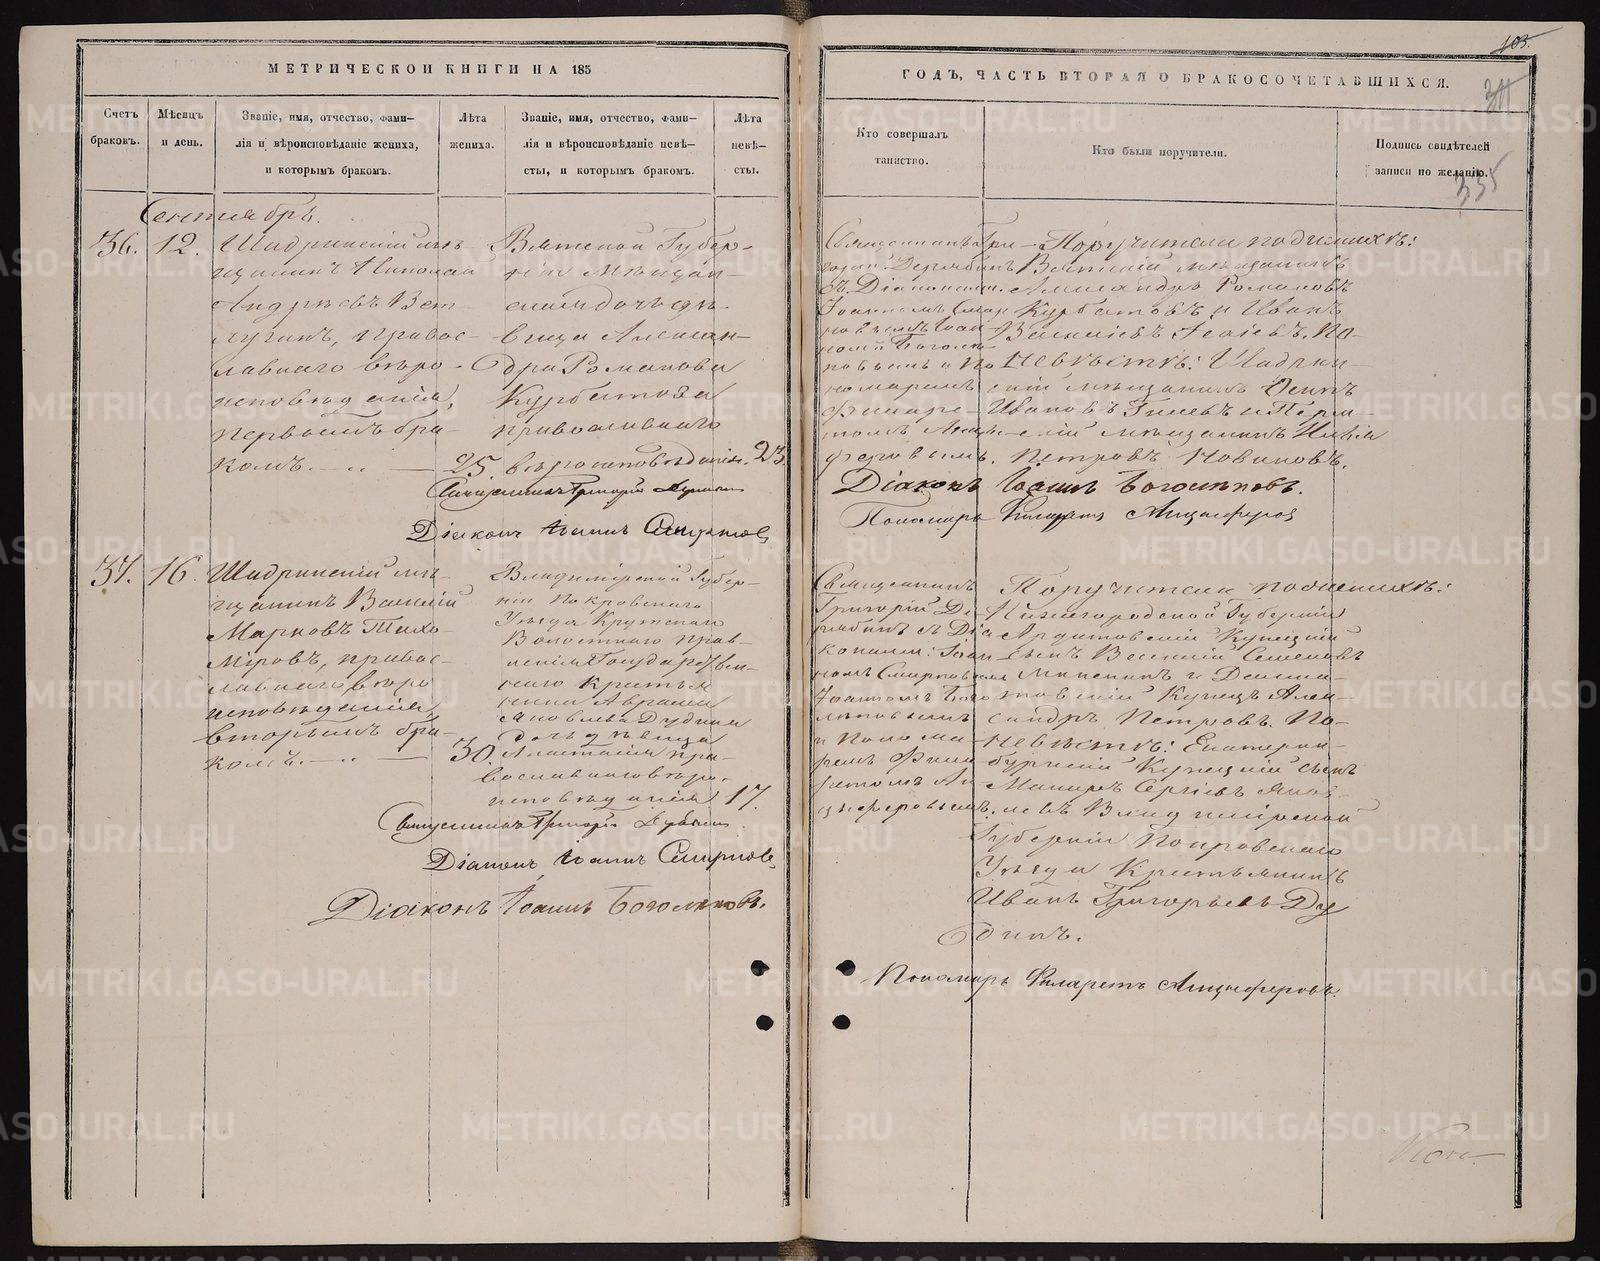 МЕТРИЧЕСКОИ КНИГИ НА 185
Счетъ браковъ.
Мѣсяцъ и день.
Званіе, имя, отчество, фами-
лія и вѣроисповѣданіе жениха,
и которымъ бракомъ.
Лѣта жениха.
Званіе, имя, отчество, фами-
лія и вѣроисповѣданіе невѣ-
сты, и которымъ бракомъ.
Лѣта невѣ-
сты.
Сентябрь.
36. 12.
Шадринскій мѣ-
щанинъ Николай
Андреевъ Вет-
лугинъ, правос-
лавнаго вѣро-
исповѣданія,
первымъ бра-
комъ. 25
Вятской Губер-
ніи Мѣщан-
ская дочь дѣ-
вица Алексан-
дра Романова
Курбатова
православнаго
вѣроисповѣданія. 23
Священникъ Григорій Дерябинъ
Діаконъ Іоаннъ Смирновъ
37. 16.
Шадринскій мѣ-
щанинъ Василій
Марковъ Тихо-
міровъ, правос-
лавнаго вѣро
исповѣданія,
вторымъ бра-
комъ. 30.
Владимірской Губер-
ніи Покровскаго
Уѣзда
Волостнаго прав-
ленія Государствен-
наго Крестья
нина Аврама
Яковлева Дудина
дочь дѣвица
Анастасія пра-
вославнаго вѣро-
исповѣданія 17.
Священникъ Григорій Дерябинъ
Діаконъ Іоаннъ Смирновъ
Діаконъ Іоаннъ Боголѣповъ.
103.
335
ГОДЪ, ЧАСТЬ ВТОРАЯ О БРАКОСОЧЕТАВШИХСЯ.
Кто совершалъ
таинство.
Кто были поручители.
Подпись свидѣтелей
записи по желанію.
Священникъ Гри-
горій Дерябинъ
съ Діаконами.
Іоанномъ Смир
новымъ Іоан
номъ Боголѣ-
повымъ и По
номаремъ
Филаре-
томъ Анцы-
феровымъ.
Поручители по женихѣ:
Вятскій мѣщанинъ
Александръ Романовъ
Курбатовъ и Иванъ
Василіевъ По-
невѣстѣ: Шадрин-
скій мѣщанинъ Осипъ
Ивановъ и Перм-
скій мѣщанинъ Илья
Петровъ Новиковъ.
Діаконъ Іоаннъ Боголѣповъ.
Пономарь Филаретъ Анцыферовъ
Священникъ
Григорій Де
рябинъ съ Діа
конами: Іоан-
номъ Смирновымъ
Іоанномъ Бого
лѣповымъ
и Понома-
ремъ Фила
ретомъ Ан
цыферовымъ.
Поручители по женихѣ:
Нижегородской Губерніи
Ардатовскій Купецкій
сынъ Василій Семеновъ
Купецъ Алек-
сандръ Петровъ. По-
невѣстѣ: Екатерин-
бургскій Купецкій сынъ
Макаръ Сергѣевъ Яков-
левъ Владимірской
Губерніи Покровскаго
Уѣзда Крестьянинъ
Иванъ Григорьевъ Ду
динъ.
Пономарь Филаретъ Анцыферовъ.
METRIKI.GASO-URAL.RU